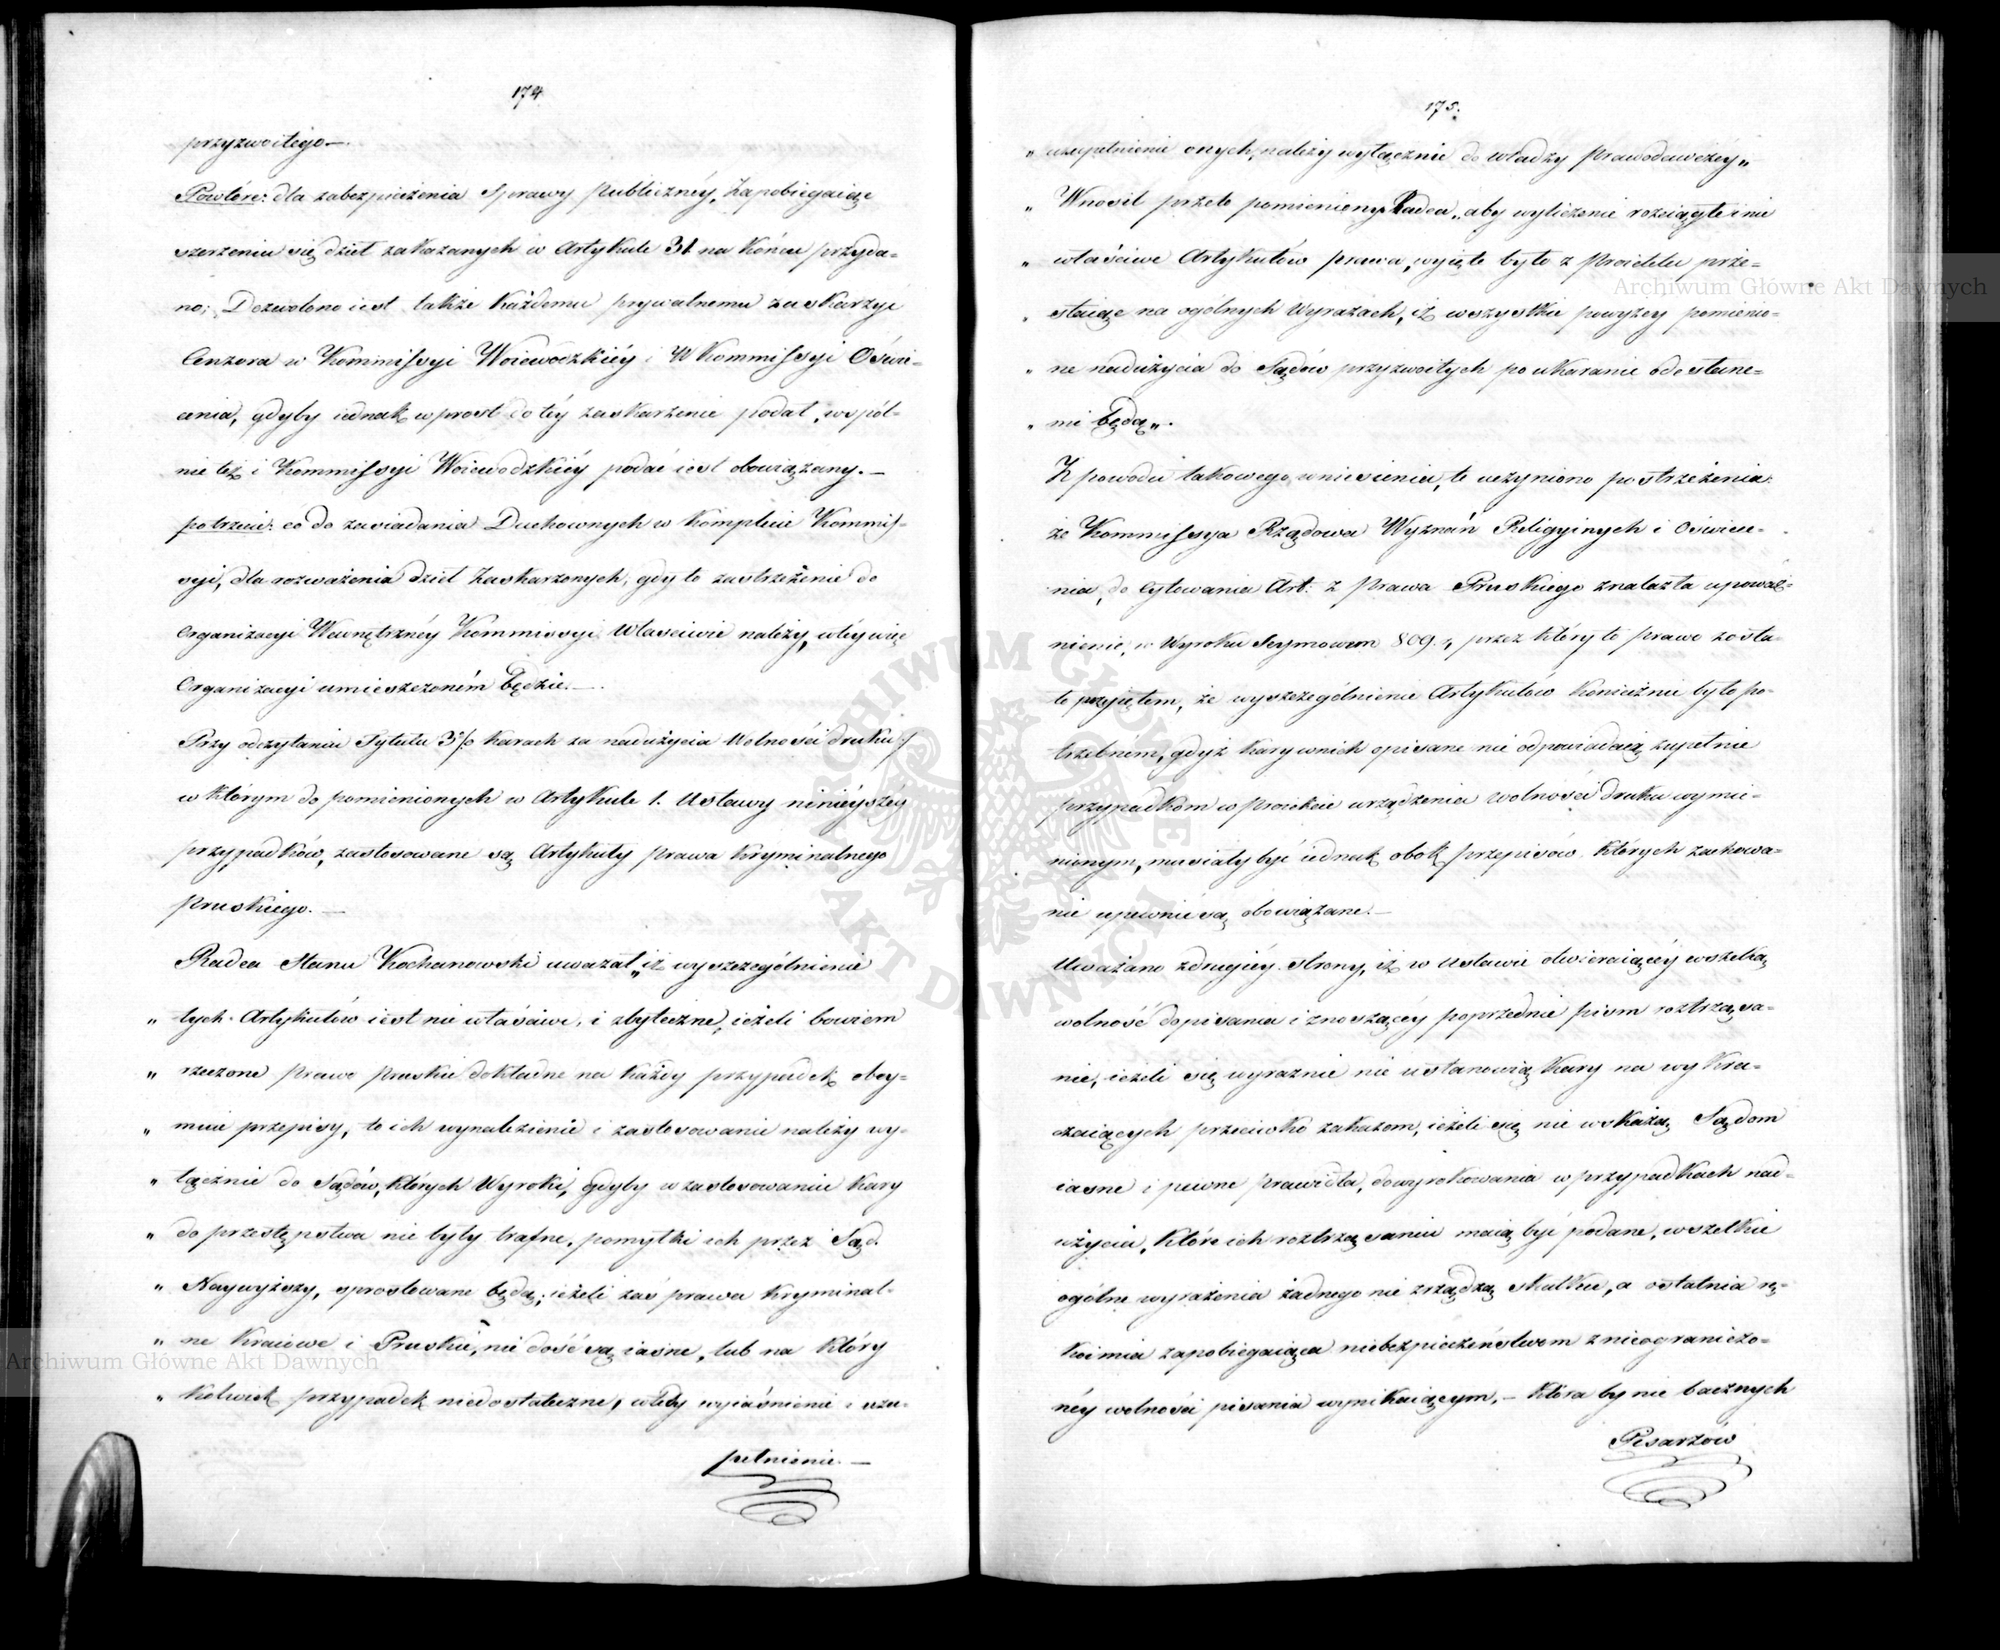 174
przyzwoitego.—
Powtóre: dla zabezpieczenia Sprawy Publicznéy, Zapobiegaiąc
szerzeniu się dzieł zakazanych w Artykule 31 na końcu przyda=
no; Dozwolono iest także każdemu prywatnemu zaskarżyć
Cenzora w Kommissyi Woiewodzkiéy i W Kommissyi Oświe=
cenia, gdyby iednak wprost do téy zaskarzenie podał, wspól=
nie też i Kommissyi Woiewodzkiéy podać iest obowiązany.—
potrzecie: co do zasiadania Duchownych w Komplecie Kommis=
syi, dla rozważenia dzieł Zaskarzonych, gdy to zastrzeżenie do
Organizacyi Wewnętrznéy Kommissyi Właściwie należy, wtéy więc
Organizacyi umieszczoném będzie.—
Przy odczytaniu Tytułu 3o /o karach za nadużycia Wolności druku:/
w którym do pomienionych w Artykule 1. Ustawy ninieyszéy
przypadków, zastosowane są Artykuły prawa Kryminalnego
Pruskiego.—
Radca Stanu Kochanowski uważał „iż wyszczególnienie
„ tych Artykułów iest nie właściwe, i zbyteczne, ieżeli bowiem
„ rzeczone prawo pruskie dokładne na każdy przypadek obey=
„ muie przepisy, to ich wynalezienie i zastosowanie należy wy=
„ łącznie do Sądów, których Wyroki, gdyby w zastosowaniu kary
„ do przestępstwa nie były trafne, pomyłki ich przez Sąd
„ Naywyższy, sprostowane będą; ieżeli zaś prawa Kryminal=
„ ne Kraiowe i Pruskie, nie dość są iasne, lub na który
„ kolwiek przypadek niedostateczne, wtedy wyiaśnienie i uzu=
pełnienie.—
175.
„ uzupełnienie onych, należy wyłącznie do władzy prawodawczéy„
„ Wnosił przeto pomieniony Radca „aby wyliczenie rozciągłe i nie
„ właściwe Artykułów prawa, wyięte było z Proiektu prze=
„ staiąc na ogólnych wyrazach, iż wszystkie powyzey pomienio=
„ ne nadużycia do Sądów przyzwoitych po ukaranie odesłane=
„ mi będą„.
Z powodu takowego wniesienia, te uczyniono postrzeżenia:
że Kommissya Rządowa Wyznań Religyinych i Oświece=
nia, do cytowania Art: z Prawa Pruskiego znalazła upoważ=
nienie, w Wyroku Seymowem 809., przez który to prawo zosta=
ło przyiętem, że wyszczególnienie Artykułów koniecznie było po=
trzebném, gdyż kary w nich opisane nie odpowiadaią zupełnie
przypadkom w proiekcie urządzenia wolności druku wymie=
nionym, musiały być iednak obok przepisów których zachowa=
nie upewnić są obowiązane.—
Uważano z drugiéy strony, iż w ustawie otwieraiącéy wszelką
wolność do pisania i znoszącéy poprzednie pism roztrząsa=
nie, ieżeli się wyraznie nie ustanowią kary na wykra=
czaiących przeciwko zakazom, ieżeli się nie wskażą Sądom
iasne i pewne prawidła, do wyrokowania w przypadkach nad=
użycia, które ich roztrząsaniu maią być podane, wszelkie
ogólne wyrażenia żadnego nie zrządzą skutku, a ostatnia rę=
koimia zapobiegaiąca niebezpieczeństwom z nieograniczo=
néy wolności pisania wynikaiącym,— która by nie bacznych
Pisarzów
Archiwum Główne Akt Dawnych
Archiwum Główne Akt Dawnych
ARCHIWUM GŁÓWNE AKT DAWNYCH